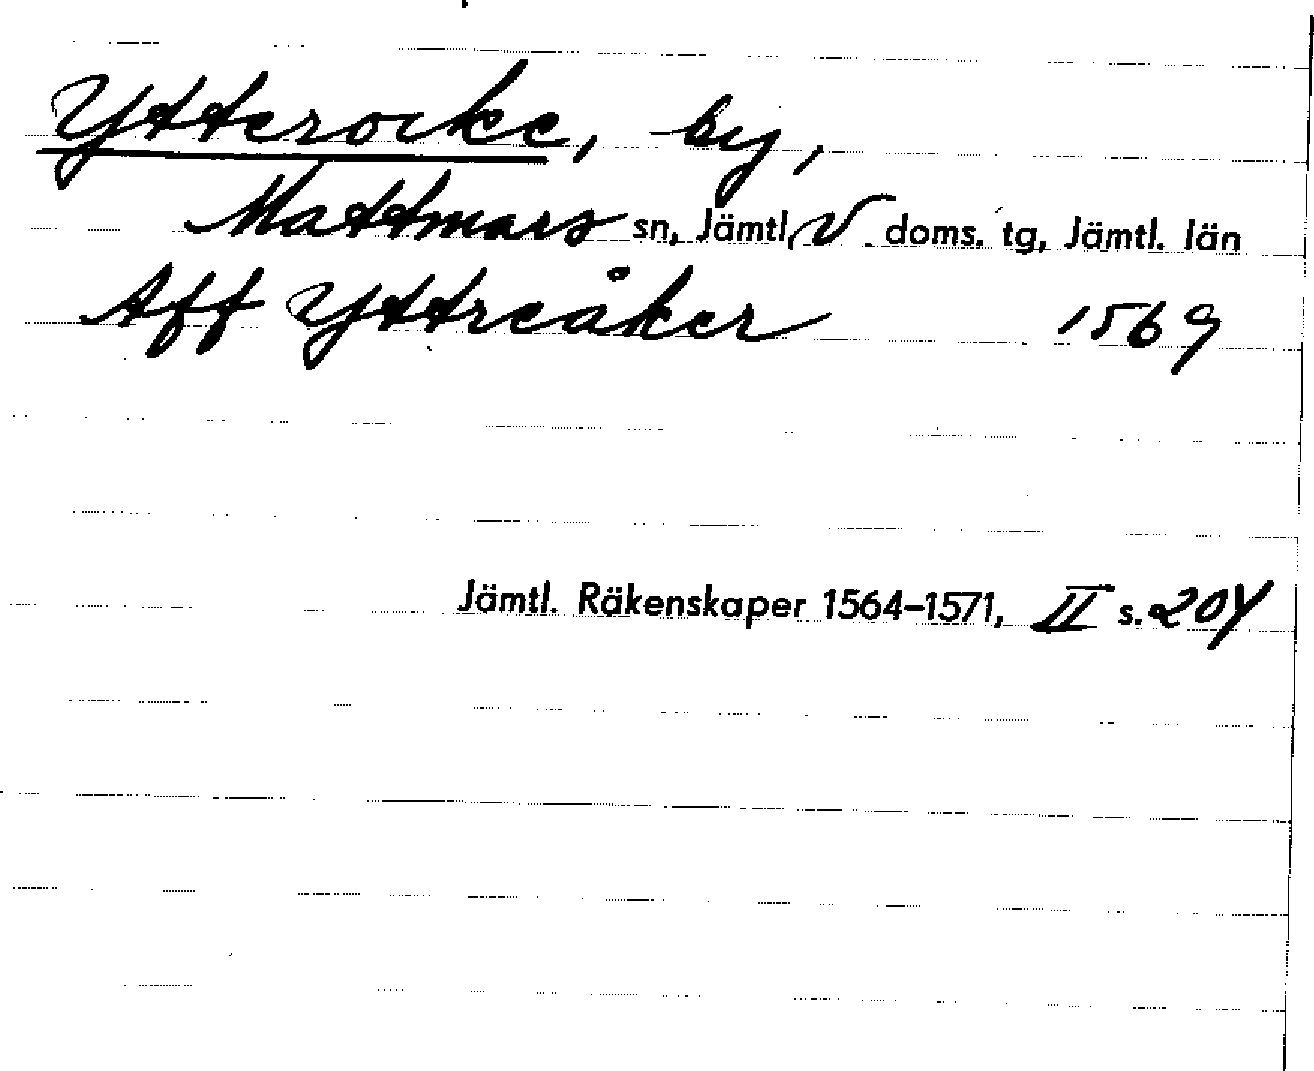 Ytterocke, by,
Mattmars sn, Jämtl. V. doms. tg, Jämtl. län
Aff Yttreåker 1569
Jämtl. Räkenskaper 1564–1571, II s. 204